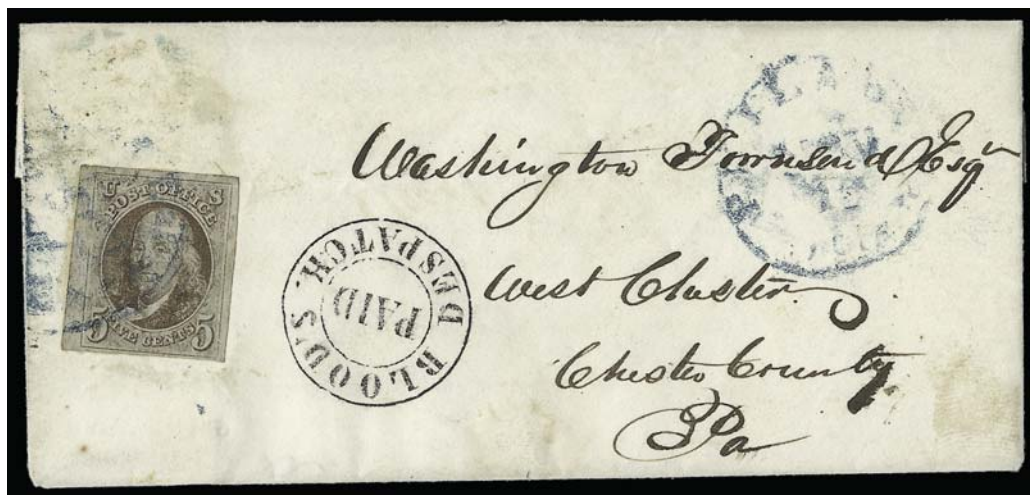 U S
POST OFFICE
FIVE CENTS
5 5
BLOOD'S DESPATCH.
PAID
Washington Townsend Esqr
West Chester
Chester County
Pa